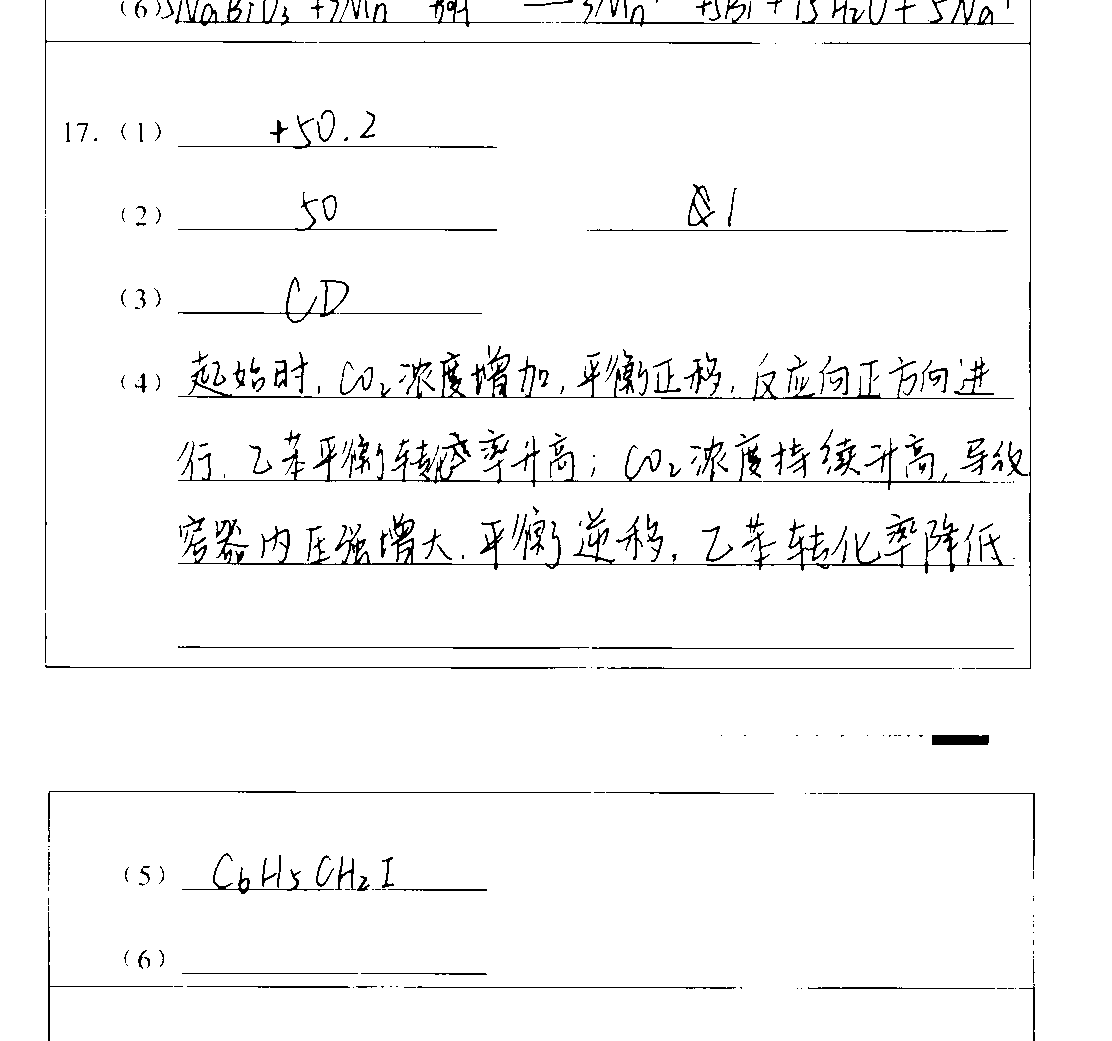 (6) 5NaBiO3 + 2Mn
17.（1） +50.2
（2） 50 1
（3） CD
（4） 起始时，CO₂浓度增加，平衡正移，反应向正方向进
行，乙苯平衡转率升高；CO₂浓度持续升高，导致
容器内压强增大，平衡逆移，乙苯转化率降低.
（5） C₆H₅CH₂I
（6）